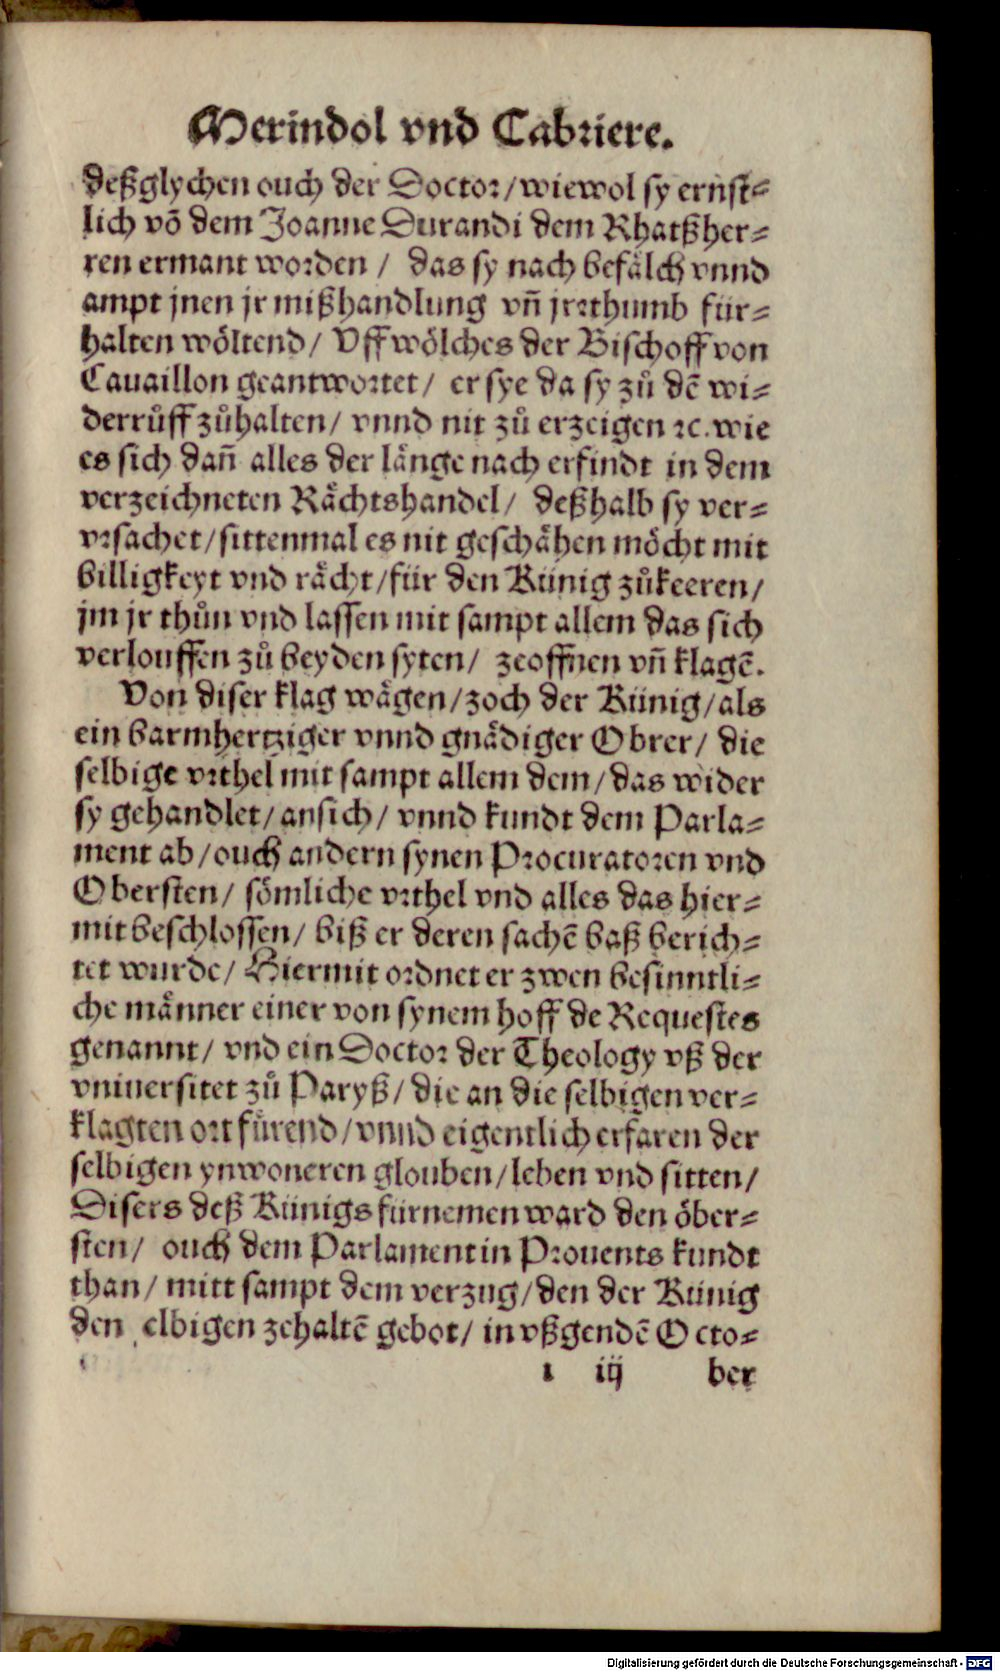 Merindol vnd Cabriere.
deßglychen ouch der Doctor/wiewol sy ernst⸗
lich võ dem Joanne Durandi dem Rhatßher⸗
ren ermant worden / das sy nach befälch vnnd
ampt jnen jr mißhandlung vn̄ jrrthumb für⸗
halten wöltend/ Vff wölches der Bischoff von
Cauaillon geantwortet/ er sye da sy zů dē wi⸗
derrůff zůhalten/ vnnd nit zů erzeigen ꝛc. wie
es sich dan̄ alles der länge nach erfindt in dem
verzeichneten Rächtshandel/ deßhalb sy ver⸗
vrsachet/sittenmal es nit geschähen möcht mit
billigkeyt vnd rächt/für den Künig zůkeeren/
jm jr thůn vnd lassen mit sampt allem das sich
verlouffen zů beyden syten/ zeoffnen vn̄ klagē.
Von diser klag wägen/zoch der Künig/als
ein barmhertziger vnnd gnädiger Obrer/ die
selbige vrthel mit sampt allem dem/das wider
sy gehandlet/ansich/ vnnd kundt dem Parla⸗
ment ab/ouch andern synen Procuratoren vnd
Obersten/ sömliche vrthel vnd alles das hier⸗
mit beschlossen/ biß er deren sachē baß berich⸗
tet wurde/ Hiermit ordnet er zwen besinntli⸗
che männer einer von synem hoff de Requestes
genannt/ vnd ein Doctor der Theology vß der
vniuersitet zů Paryß/die an die selbigen ver⸗
klagten ort fürend/vnnd eigentlich erfaren der
selbigen ynwoneren glouben/leben vnd sitten/
Disers deß Künigs fürnemen ward den öber⸗
sten/ ouch dem Parlament in Prouents kundt
than/ mitt sampt dem verzug/den der Künig
den elbigen zehaltē gebot/ in vßgendē Octo⸗
i iij ber
Digitalisierung gefördert durch die Deutsche Forschungsgemeinschaft - DFG